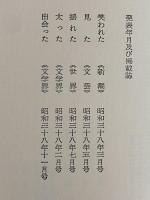 発表年月及び掲載誌
笑われた 《新潮》 昭和三十八年三月号
見た 《文芸》 昭和三十八年五月号
揺れた 《世界》 昭和三十八年七月号
太った 《文学界》 昭和三十八年二月号
出会った 《文学界》 昭和三十八年十一月号